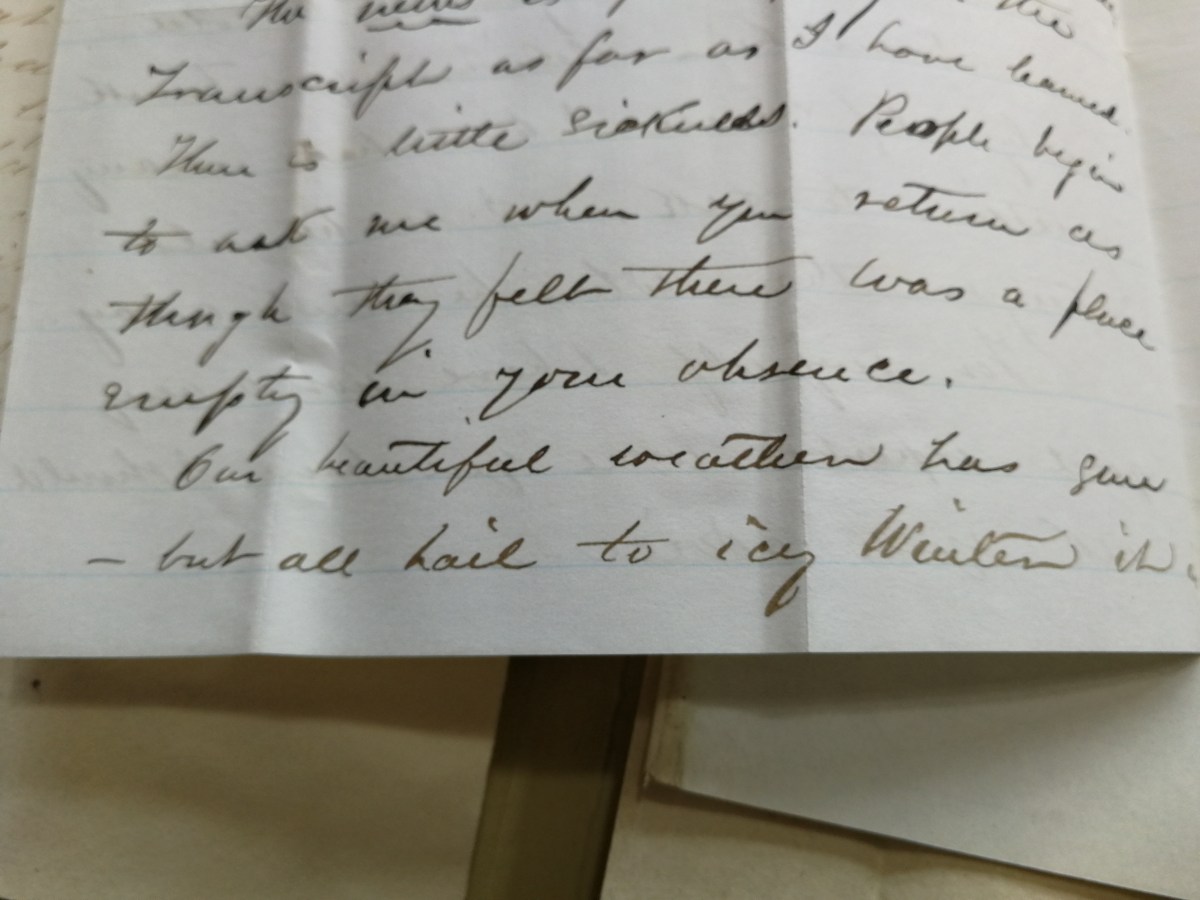 The news is the
Transcript as far as I have learned.
There is little sickness. People begin
to ask me when you return as
though they felt there was a place
empty in your absence.
Our beautiful weather has gone
– but all hail to icy Winter it